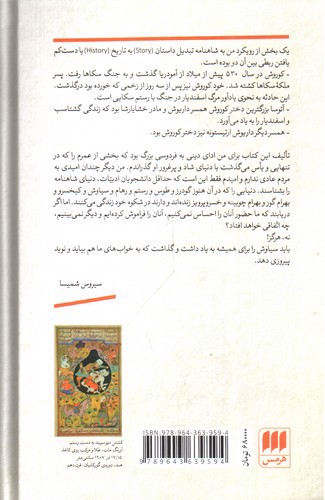 یک بخش از رویکرد من به شاهنامه تبدیل داستان (Story) به تاریخ (History) یا دست‌کم
یافتن ربطی بین آن دو بوده است.
- کوروش در سال ۵۳۰ پیش از میلاد از آمودریا گذشت و به جنگ سکاها رفت. پسر
ملکهٔ سکاها کشته شد. خود کوروش نیز پس از سه روز از زخمی که خورده بود درگذشت.
این حادثه به نحوی یادآور مرگ اسفندیار در جنگ با رستم سکایی است.
- آتوسا بزرگترین دختر کوروش همسر داریوش و مادر خشایارشا بود که زندگی گشتاسب
و اسفندیار را به یاد می‌آورد.
- همسر دیگر داریوش ارتیستونه نیز دختر کوروش بود.
تألیف این کتاب برای من ادای دینی به فردوسی بزرگ بود که بخشی از عمرم را که در
تنهایی و یأس می‌گذشت با دنیای شاد و پرغرور او گذراندم. من دیگر چندان امیدی به
مردم عادی ندارم و امیدم فقط این است که حداقل دانشجویان ادبیات، دنیای شاهنامه
را بشناسند. دنیایی را که در آن هنوز گودرز و طوس و رستم و رهام و سیاوش و کیخسرو و
بهرام گور و بهرام چوبینه و خسروپرویز زنده‌اند و دارند در شکوه خود زندگی می‌کنند. اما اگر
دریابند که ما حضور آنان را احساس نمی‌کنیم، آنان را فراموش کرده‌ایم و دیگر نمی‌بینیم،
چه اتفاقی خواهد افتاد؟
نه، هرگز!
باید سیاوش را برای همیشه به یاد داشت و گذاشت که به خواب‌های ما هم بیاید و نوید
پیروزی دهد.
سیروس شمیسا
کشتن دیو سپید به دست رستم
آبرنگ مات، طلا و مرکب روی کاغذ،
هند، دوره‌ی گورکانیان، قرن دهم
ISBN 978-964-363-959-4
9 789643 639594
۶۸۰۰۰۰ تومان
هرمس